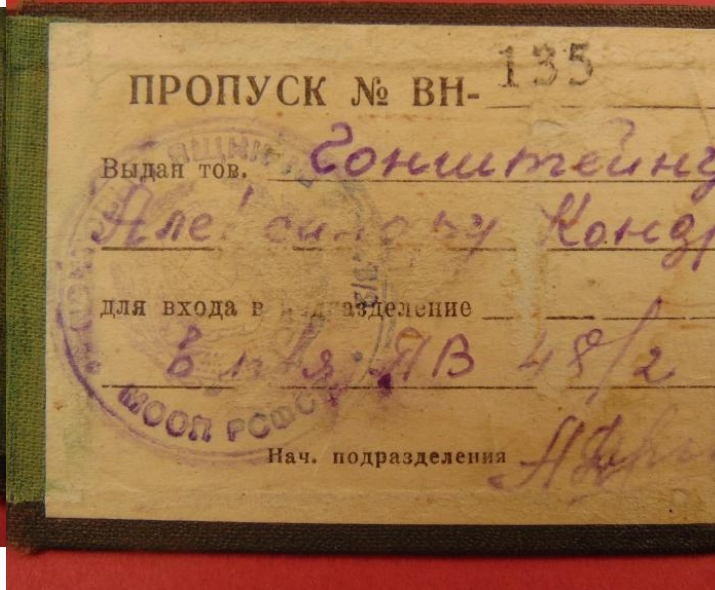 ПРОПУСК № ВН- 135
Выдан тов. Гонштейну
Александру Кондр
для входа в подразделение
в п/я ЯВ 48/2
Нач. подразделения
МООП РСФСР